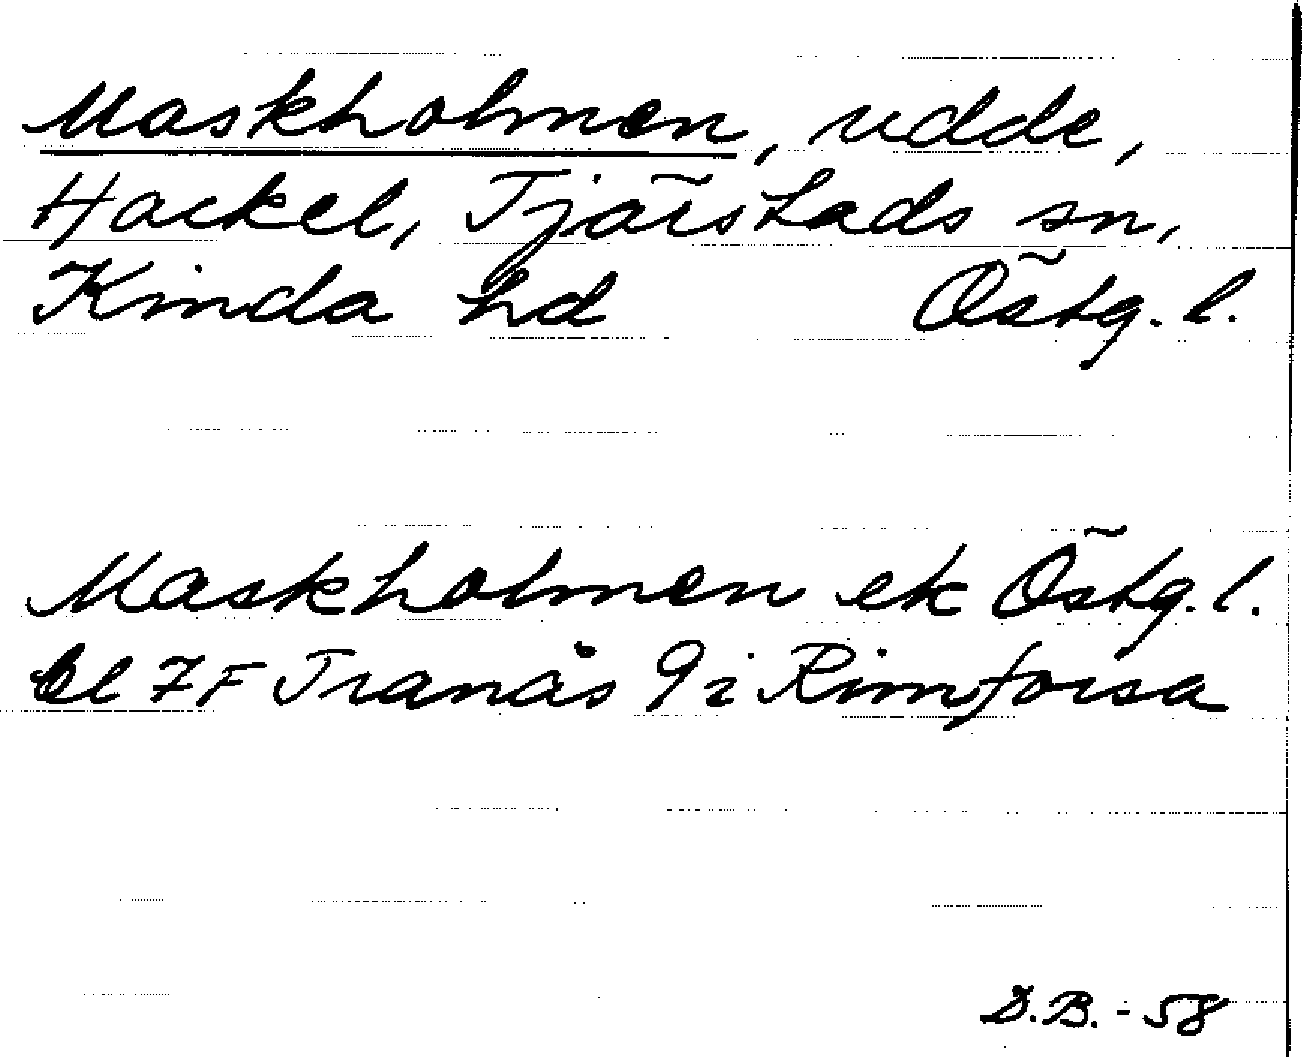 Maskholmen, udde,
Hackel, Tjärstads sn,
Kinda hd Östg. l.
Maskholmen ek Östg. l.
bl 7F Tranås 9i Rimforsa
D.B. - 58